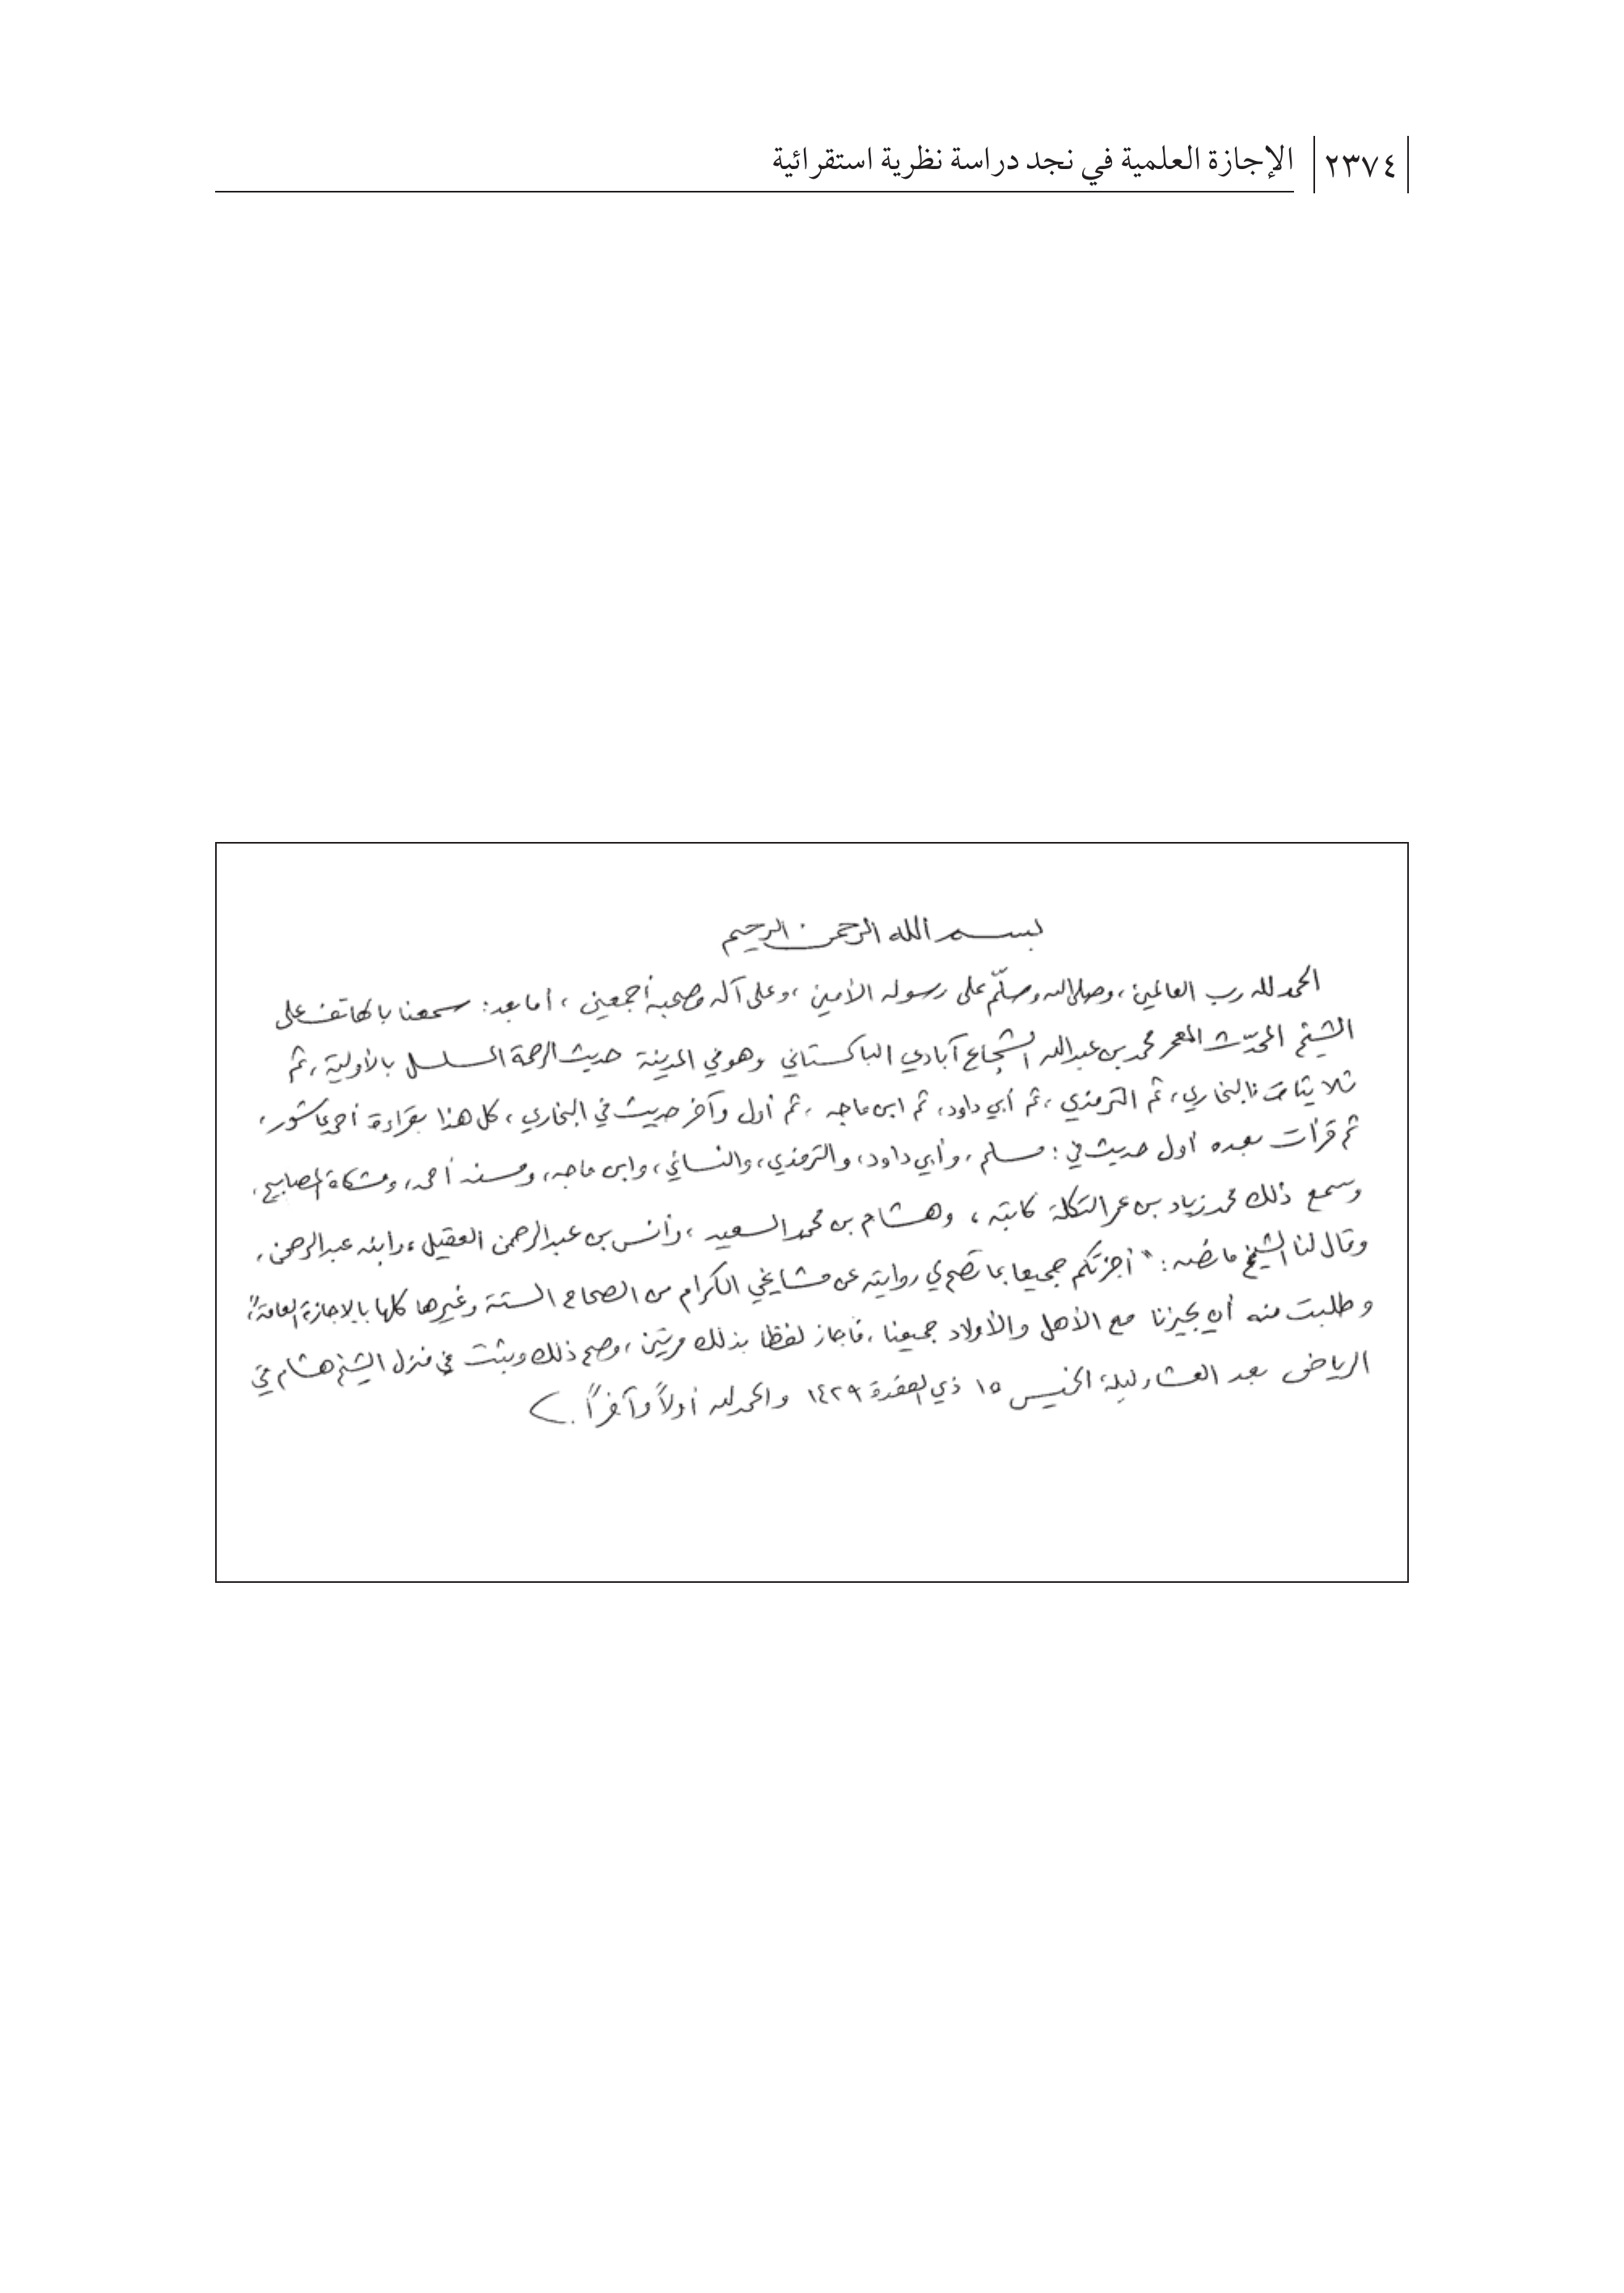 ٢٣٧٤ الإجازة العلمية في نجد دراسة نظرية استقرائية
بسم الله الرحمن الرحيم
الحمد لله رب العالمين، وصلى الله وسلّم على رسوله الأمين، وعلى آله وصحبه أجمعين، أما بعد: سمعنا بالهاتف على
الشيخ المحدّث المعمر محمد بن عبدالله الشجاع آبادي الباكستاني وهو في المدينة حديث الرحمة المسلسل بالأولية، ثم
ثلاثيات البخاري، ثم الترمذي، ثم أبي داود، ثم ابن ماجه، ثم أول وآخر حديث في البخاري، كل هذا بقراءة أحمد عاشور،
ثم قرأت بعده أول حديث في: مسلم، وأبي داود، والترمذي، والنسائي، وابن ماجه، ومسند أحمد، ومشكاة المصابيح،
وسمع ذلك محمد زياد بن عمر التكلة كاتبه، وهشام بن محمد السعيد، وأنس بن عبدالرحمن العقيل، وابنه عبدالرحمن،
وقال لنا الشيخ ما نصه: "أجزتكم جميعا بما تصح لي روايته عن مشايخي الكرام من الصحاح الستة وغيرها كلها بالإجازة العامة"،
وطلبت منه أن يجيزنا مع الأهل والأولاد جميعنا، فأجاز لفظا بذلك مرتين، وصح ذلك وثبت في منزل الشيخ هشام في
الرياض بعد العشاء ليلة الخميس ١٥ ذي القعدة ١٤٢٩ والحمد لله أولاً وآخراً.